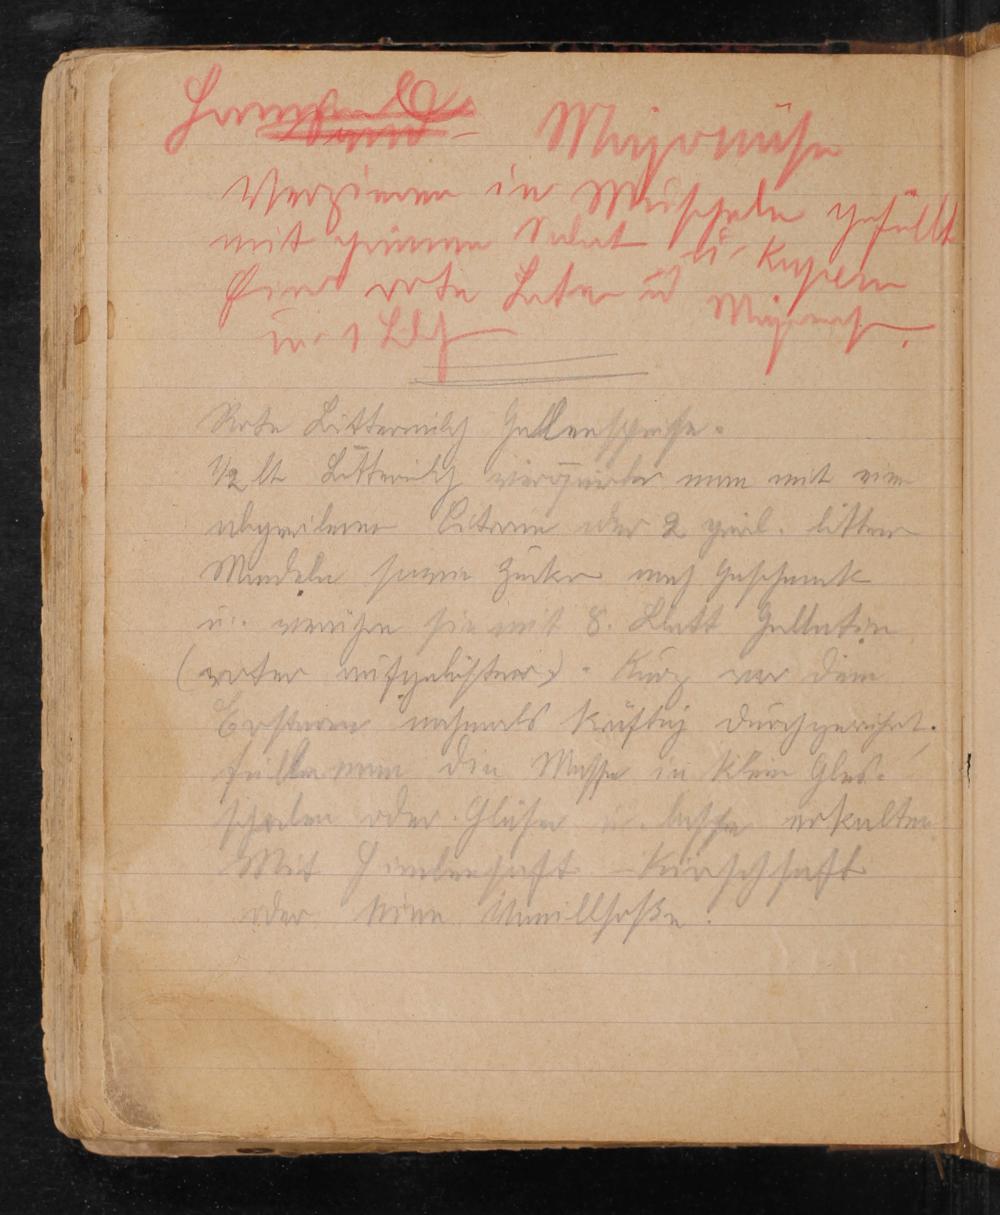 Majonäse
Verzieren in Muscheln gefüllt
mit grünen Salat u. Kapern
rote u Majonais.
u. 1
Rote Buttermilch Gellenspeise.
1/2 lt Buttermilch verquirle man mit einer
abgeriebenen Citrone oder 2 bittere
Mandeln sowie Zucker nach Geschmack
u. verrühre sie mit 8. Blatt Gellatine
(roter aufgelöster). Kurz vor dem
Erstarren nochmals kräftig durchgerührt,
fülle man die Masse in klein Glas-
schalen oder Gläser u. lasse erkalten
Mit Himbeersaft - Kirschsaft
oder eine Vanillsoße.